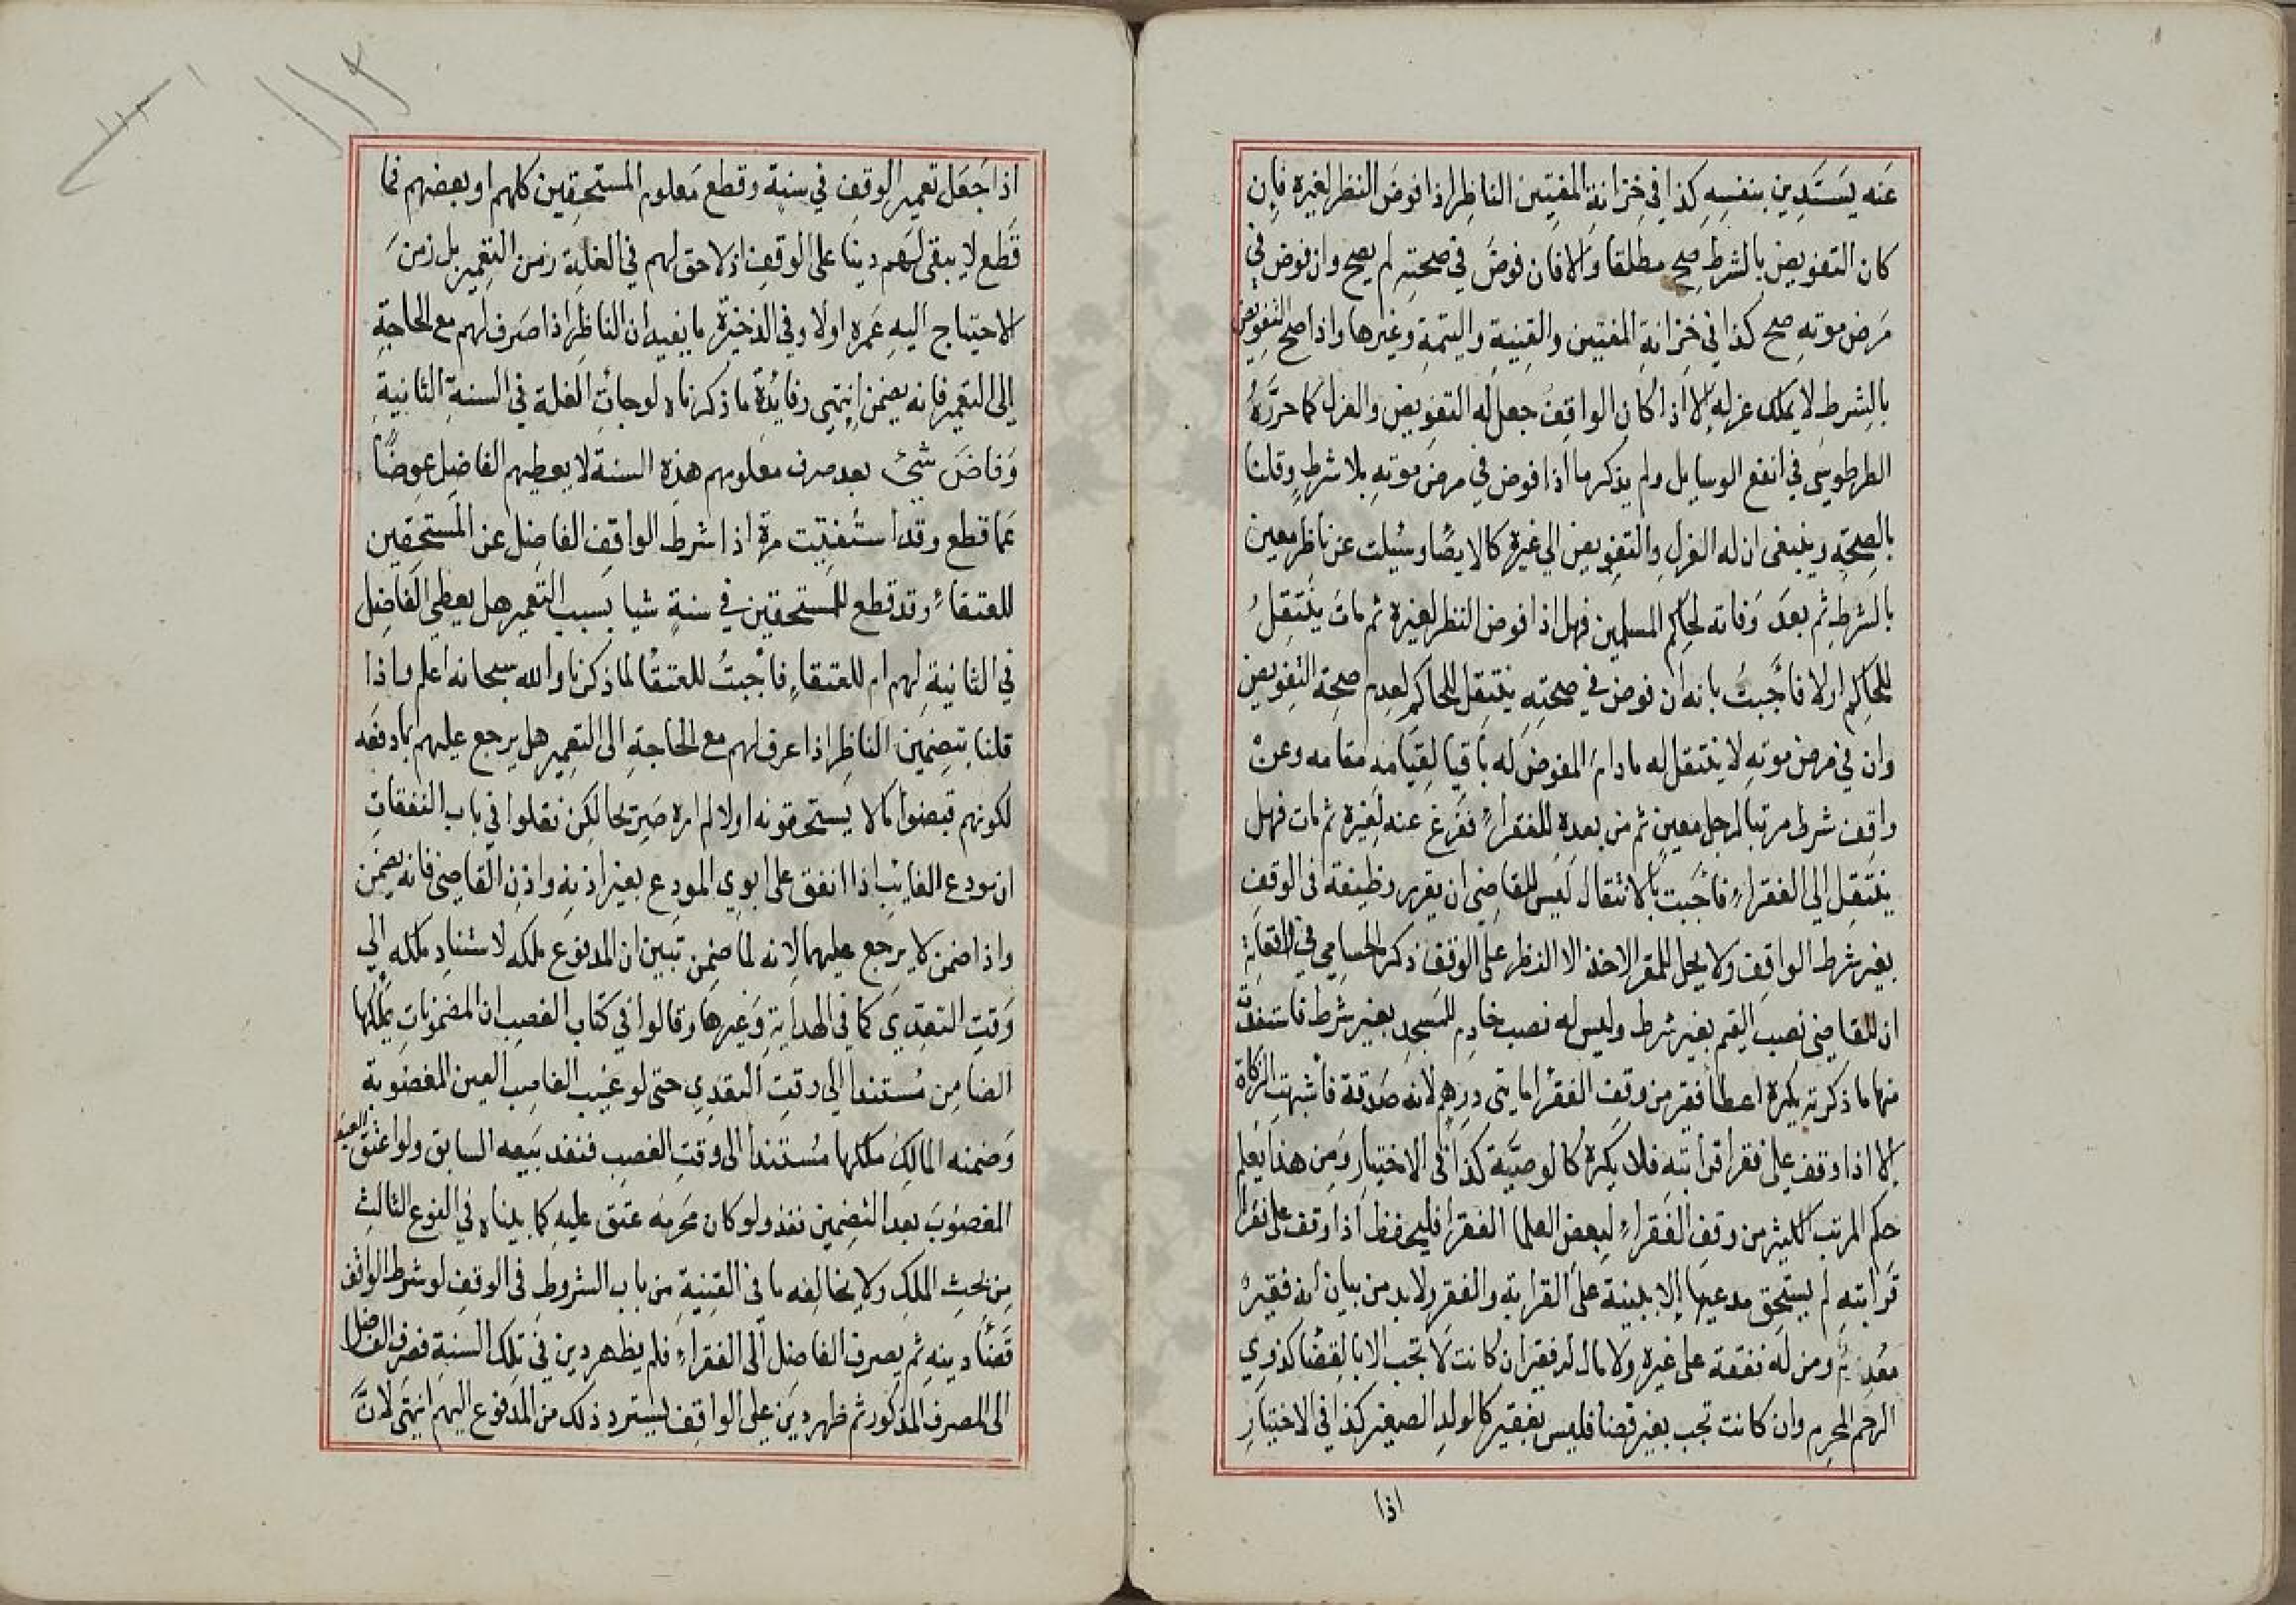 عنه يستدين بنفسه كذا في خزانة المفتين الناظر اذا فوض النظر لغيره فان
كان التفويض بالشرط صح مطلقا والا فان فوض في صحته لم يصح وان فوض في
مرض موته صح كذا في خزانة المفتين والقنية واليتمة وغيرها واذا صح التفويض
بالشرط لا يملك عزله الا اذا كان الواقف جعل له التفويض والعزل كما حرره
الطرطوسى في انفع الوسايل ولم يذكر ما اذا فوض في مرض موته بلا شرط وقلنا
بالصحة وينبغى ان له العزل والتفويض الي غيره كالايصا وسئلت عن ناظر معين
بالشرط ثم بعد وفاته لحاكم المسلمين فهل اذا فوض النظر لغيره ثم مات ينتقل
للحاكم اولا فأجبت بانه ان فوض في صحته ينتقل للحاكم لعدم صحة التفويض
وان في مرض موته لا ينتقل له مادام المفوض له باقيا لقيامه مقامه وعن
واقف شرط مرتبا لرجل معين ثم من بعده للفقراء ففرغ عنه لغيره ثم مات فهل
ينتقل الي الفقراء فأجبت بالانتقال ليس للقاضي ان يقرر وظيفة في الوقف
بغير شرط الواقف ولا يحل للمقرر الاخذ الا النظر على الوقف ذكر الحسامي في الواقعات
ان للقاضي نصب القيم بغير شرط وليس له نصب خادم للمسجد بغير شرط فاستفدت
منها ما ذكرته يكره اعطا فقير من وقف الفقرا مايتى درهم لانه صدقة فأشبهت الزكاة
الا اذا وقف على فقرا قرابته فلا يكره كالوصية كذا في الاختيار ومن هذا يعلم
حكم المرتب الكثير من وقف الفقراء لبعض العلما الفقرا فليحفظ اذا وقف على فقرا
قرابته لم يستحق مدعيها الا ببينة على القرابة والفقر ولابد من بيان انه فقير
معدم ومن له نفقة على غيره ولا مال له فقير ان كانت لا تجب الا بالقضا كذوي
الرحم المحرم وان كانت تجب بغير قضا فليس بفقير كالولد الصغير كذا في الاختيار
اذا
١١٢
١١٢
اذا جعل تعمير الوقف في سنة وقطع معلوم المستحقين كلهم او بعضهم فما
قطع لا يبقى لهم دينا على الوقف اذ لا حق لهم في الغلة زمن التعمير بل زمن
الاحتياج اليه عمره اولا وفي الذخيرة ما يفيد ان الناظر اذا صرف لهم مع الحاجة
الى التعمير فانه يضمن انتهى وفايدة ما ذكرناه لو جاءت الغلة في السنة الثانية
وفاض شئ بعد صرف معلومهم هذه السنة لا يعطيهم الفاضل عوضا
عما قطع وقد استفتيت مرة اذا شرط الواقف الفاضل عن المستحقين
للعتقاء وقد قطع للمستحقين في سنة شيا بسبب التعمير هل يعطي الفاضل
في الثانية لهم ام للعتقاء فأجبت للعتقا لما ذكرنا والله سبحانه اعلم واذا
قلنا بتضمين الناظر اذا عرف لهم مع الحاجة الى التعمير هل يرجع عليهم بما دفعه
لكونهم قبضوا مالا يستحقونه اولا لم اره صريحا لكن نقلوا في باب النفقات
ان مودع الغايب اذا انفق على ابوي المودع بغير اذنه واذن القاضي فانه يضمن
واذا ضمن لا يرجع عليهما لانه لما ضمن تبين ان المدفوع ملكه لاستناد ملكه الى
وقت التعدي كما في الهداية وغيرها وقالوا في كتاب الغصب ان المضمونات يملكها
الضامن مستندا الى وقت التعدي حتى لو غيب الغاصب العين المغصوبة
وضمنه المالك ملكها مستندا الى وقت الغصب فنفذ بيعه السابق ولو اعتق العبد
المغصوب بعد التضمين نفذ ولو كان محرمه عتق عليه كما بيناه في النوع الثالث
من بحث الملك ولا يخالفه ما في القنية من باب الشروط في الوقف لو شرط الواقف
قضاء دينه ثم يصرف الفاضل الى الفقراء فلم يظهر دين في تلك السنة فصرف الفاضل
الى المصرف المذكور ثم ظهر دين على الواقف يسترد ذلك من المدفوع اليهم انتهى لان